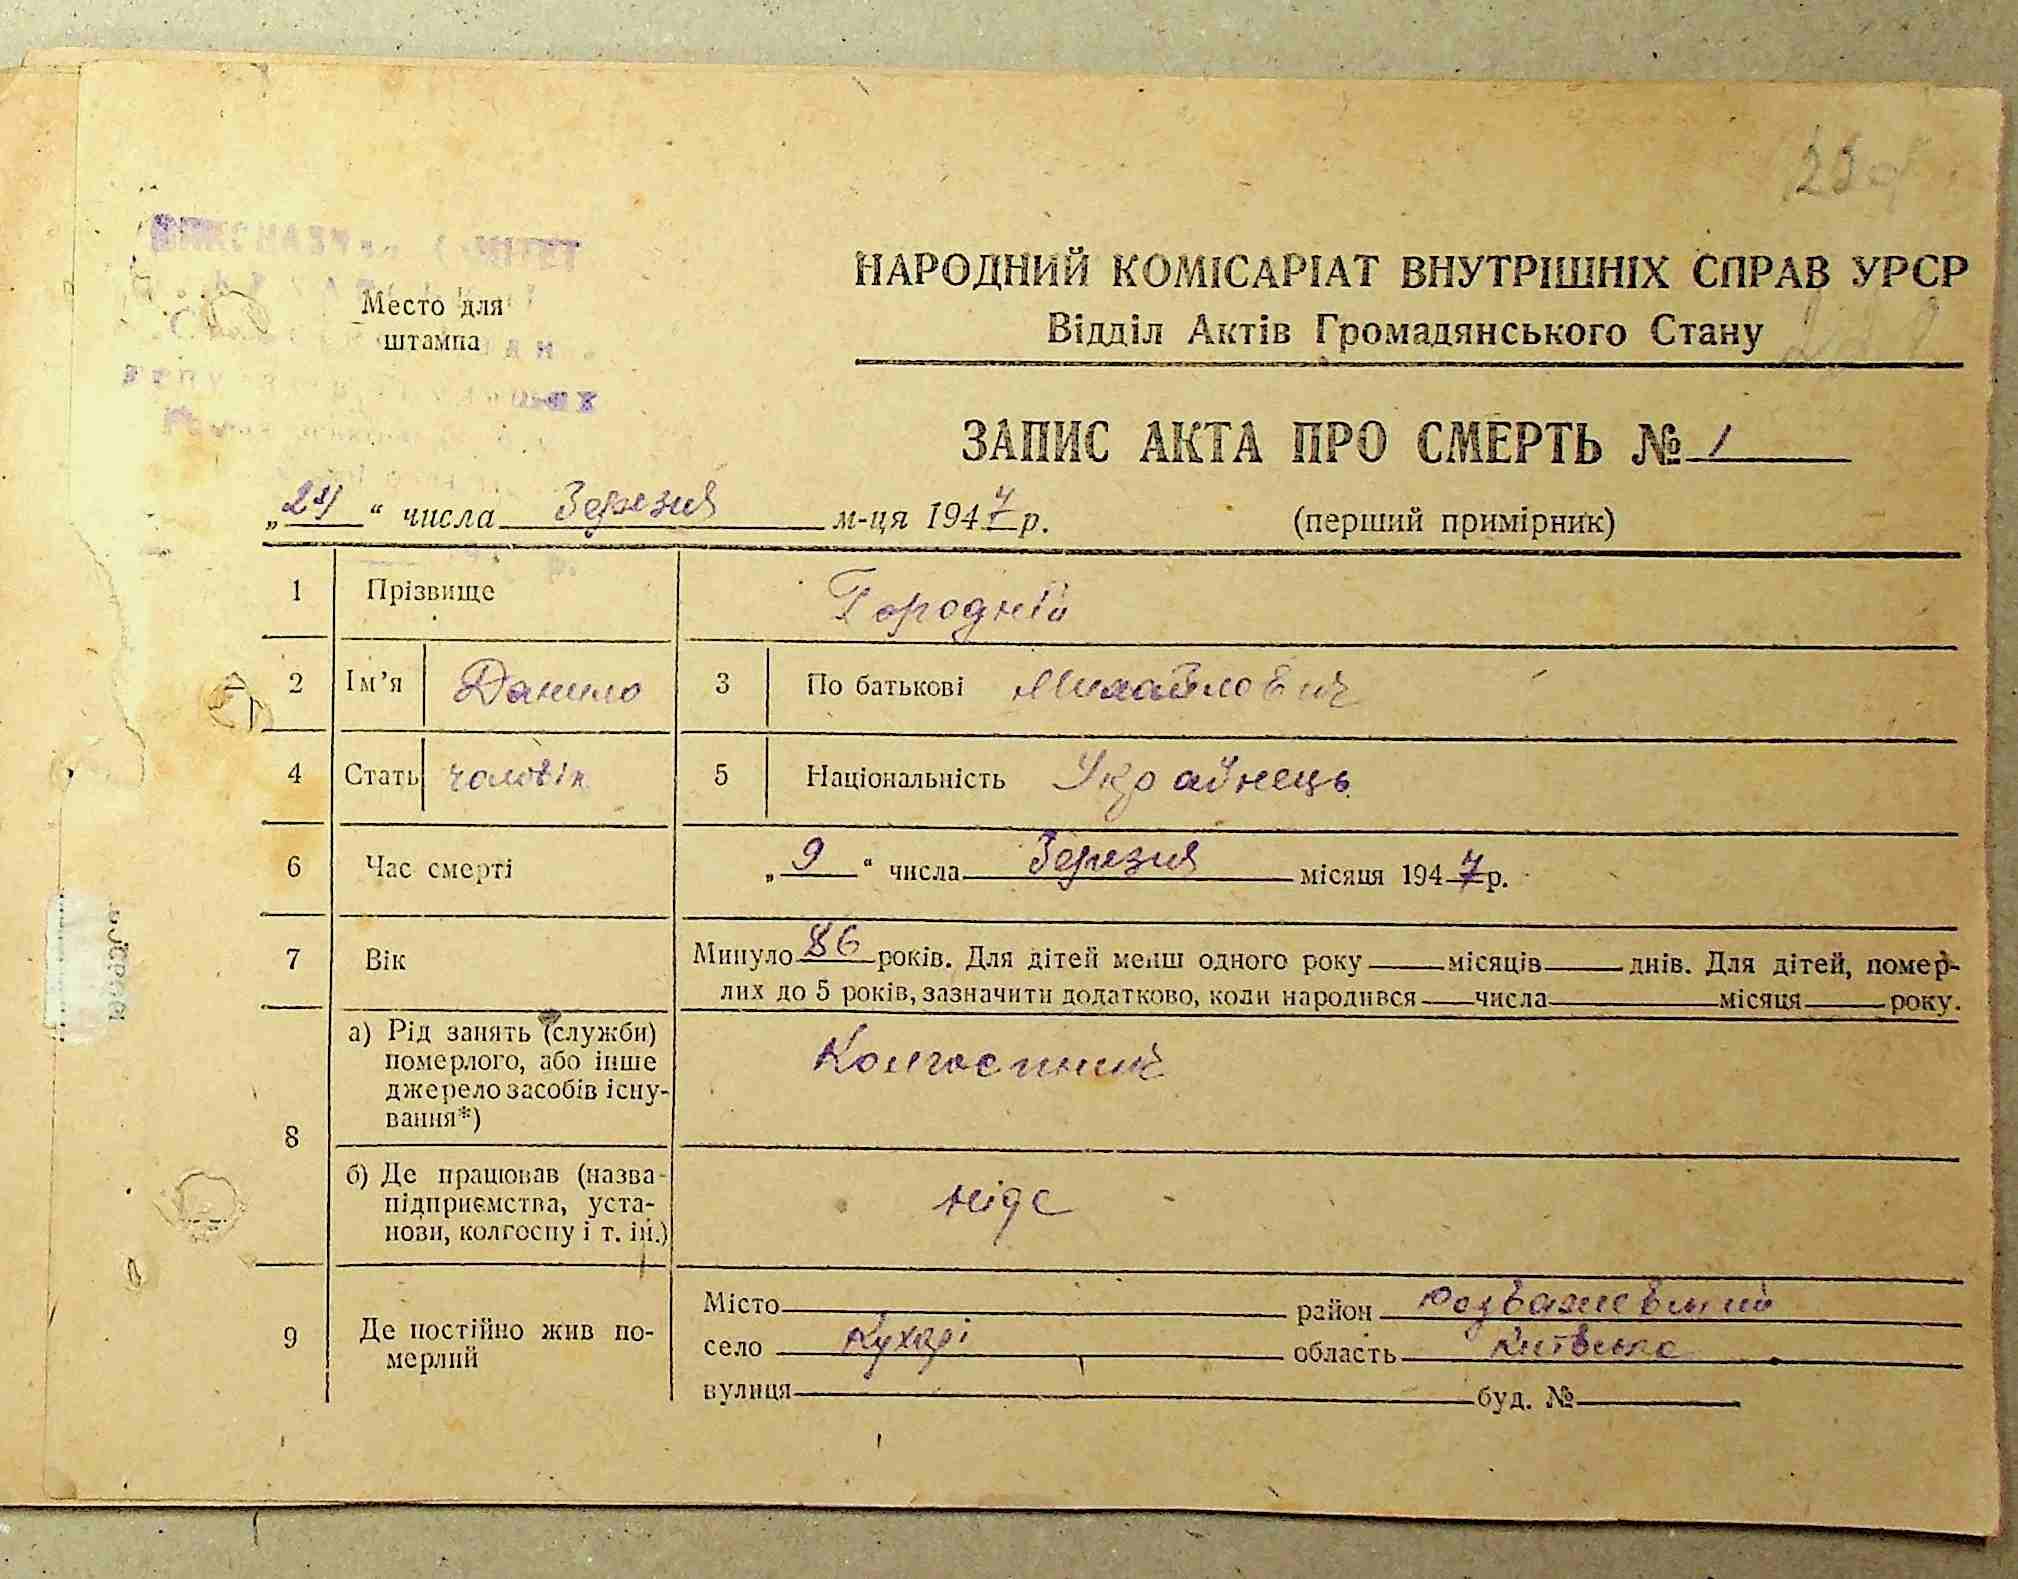 НАРОДНИЙ КОМІСАРІАТ ВНУТРІШНІХ СПРАВ УРСР
Відділ Актів Громадянського Стану
Место для
штампа
ЗАПИС АКТА ПРО СМЕРТЬ № 1
„ “ числа Березня м-ця 1947 р.
(перший примірник)
1 Прізвище Городній
2 Ім’я Данило 3 По батькові Михайлович
4 Стать чоловік 5 Національність Українець
6 Час смерті „ 9 “ числа Березня місяця 1947 р.
7 Вік Минуло 86 років. Для дітей менш одного року місяців днів. Для дітей, помер-
лих до 5 років, зазначити додатково, коли народився числа місяця року.
8 а) Рід занять (служби)
померлого, або інше
джерело засобів існу-
вання*)
Колгоспник
б) Де працював (назва
підприємства, уста-
нови, колгоспу і т. ін.)
ніде
9 Де постійно жив по-
мерлий
Місто район Розважевський
село Кухарі область Київська
вулиця буд. №